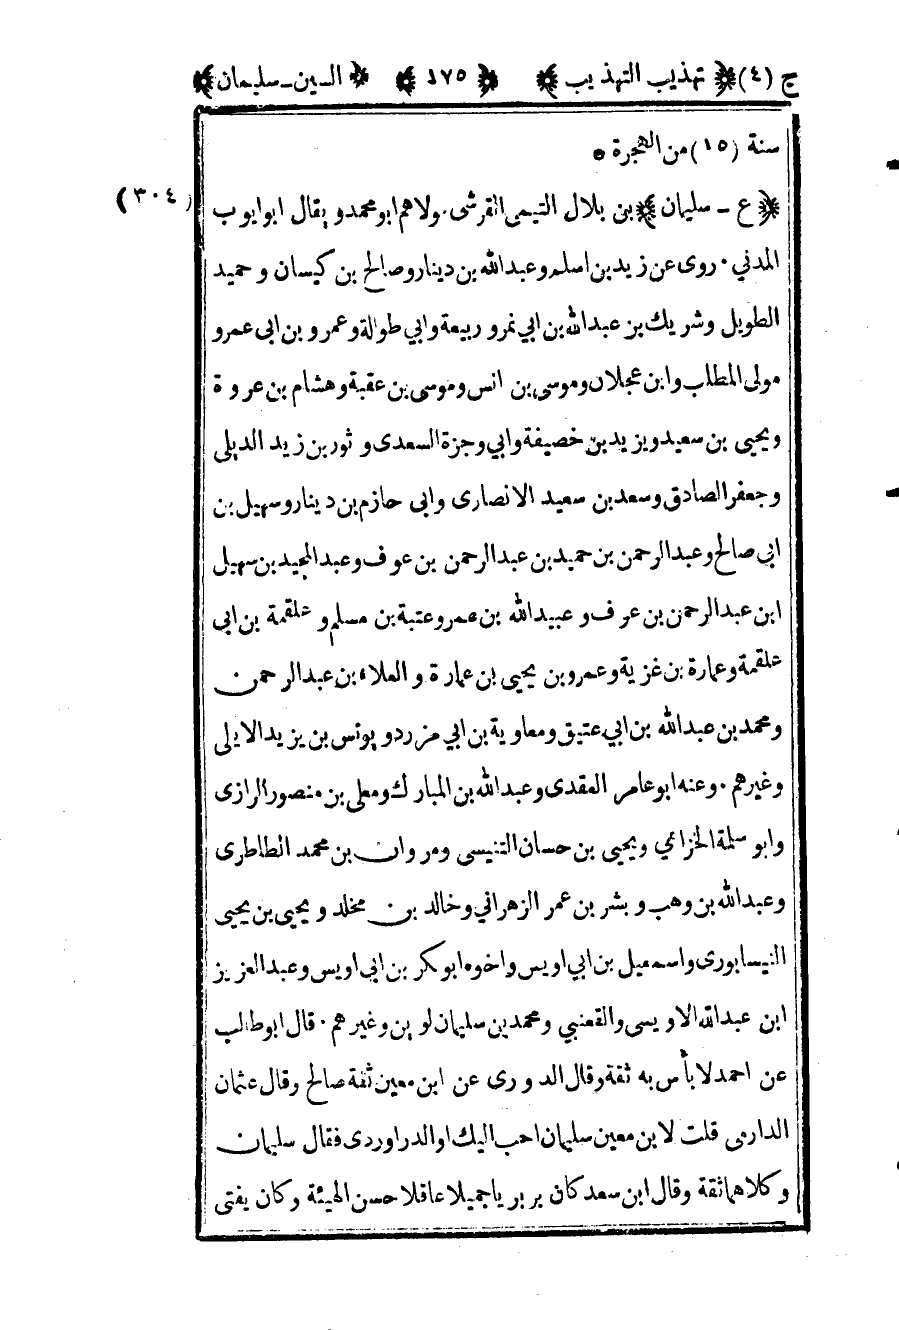 ج (٤) ﴿ تهذيب التهذيب ﴾ ﴿ ١٧٥ ﴾ ﴿ السين ــ سليمان ﴾
سنة (١٥) من الهجرة ٠
(٣٠٤) ﴿ ع ــ سليمان ﴾ بن بلال التيمى القرشى ٠ ولاهم ابو محمد و يقال ابو ايوب
المدني ٠ روى عن زيد بن اسلم وعبدالله بن دينار وصالح بن كيسان وحميد
الطويل وشريك بن عبدالله بن ابي نمر و ربيعة وابي طوالة وعمرو بن ابى عمرو
مولى المطلب وابن عجلان وموسى بن انس وموسى بن عقبة وهشام بن عروة
ويحيى بن سعيد ويزيد بن خصيفة وابي وجزة السعدى وثور بن زيد الديلى
وجعفر الصادق وسعد بن سعيد الانصارى وابى حازم بن دينار وسهيل بن
ابى صالح وعبدالرحمن بن حميد بن عبدالرحمن بن عوف وعبد المجيد بن سهيل
ابن عبدالرحمن بن عوف و عبيدالله بن عمرو عتبة بن مسلم و علقمة بن ابى
علقمة وعمارة بن غزية وعمرو بن يحيى بن عمارة و العلاء بن عبدالرحمن
ومحمد بن عبدالله بن ابي عتيق ومعاوية بن ابي مزرد و يونس بن يزيد الايلى
وغيرهم ٠ وعنه ابو عامر العقدى وعبدالله بن المبارك ومعلى بن منصور الرازى
وابو سلمة الخزاعي ويحيى بن حسان التنيسى ومروان بن محمد الطاطرى
وعبدالله بن وهب و بشر بن عمر الزهراني وخالد بن مخلد و يحيى بن يحيى
النيسابورى واسمعيل بن ابي اويس واخوه ابو بكر بن ابي اويس وعبد العزيز
ابن عبدالله الاويسى والقعنبي ومحمد بن سليمان لوين وغيرهم ٠ قال ابو طالب
عن احمد لا بأس به ثقة وقال الدورى عن ابن معين ثقة صالح وقال عثمان
الدارمى قلت لابن معين سليمان احب اليك او الدراوردى فقال سليمان
وكلاهما ثقة وقال ابن سعد كان بربريا جميلا عاقلا حسن الهيئة وكان يفتى